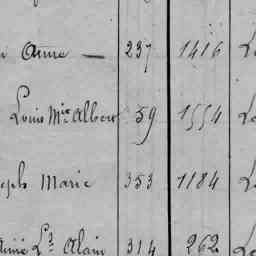 Anne — 237 1416 L
Louis Mie Albert 59 1554 L
seph Marie 353 1184 L
Aimé Ls Alain 314 262 L